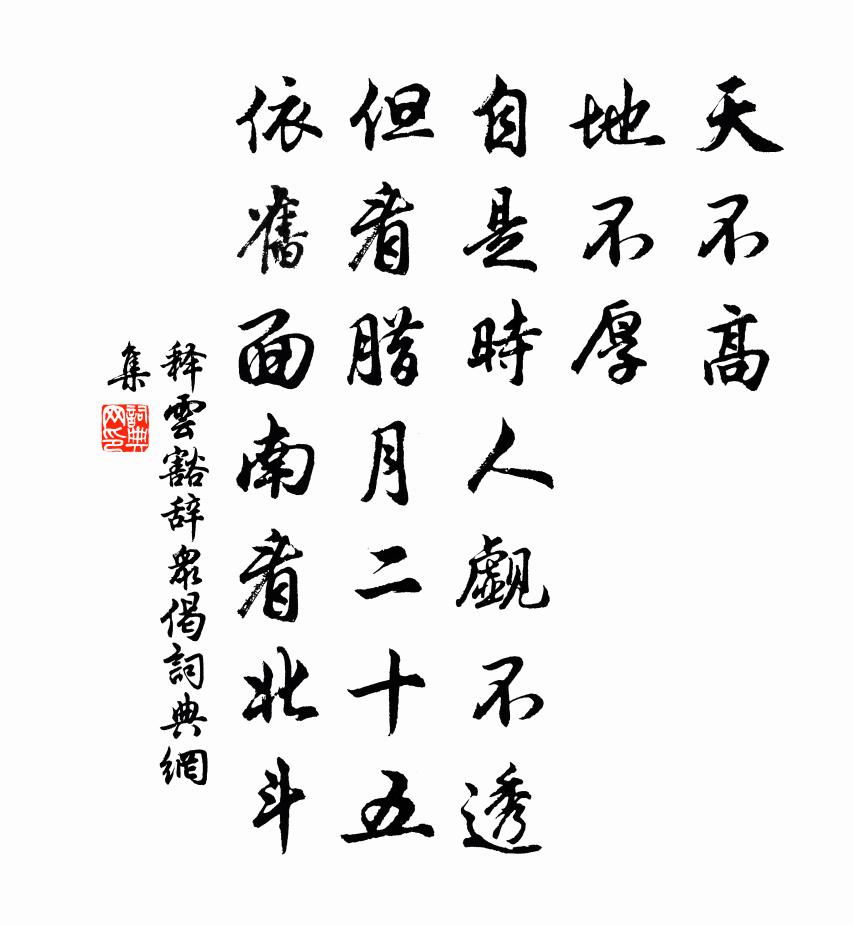 天不高
地不厚
自是時人覷不透
但看腊月二十五
依舊面南看北斗
释雲豁辞衆偈詞典網
集
詞典
网印